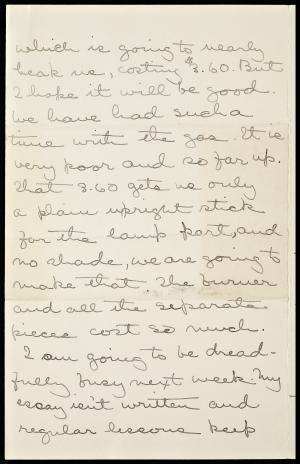 which is going to nearly
break me, costing $3.60. But
I hope it will be good.
We have had such a
time with the gas. It is
very poor and so far up.
That 3.60 gets us only
a plain upright stick
for the lamp part, and
no shade, we are going to
make that. The burner
and all the separate
pieces cost so much.
I am going to be dread-
fully busy next week. My
essay isn't written and
regular lessons keep